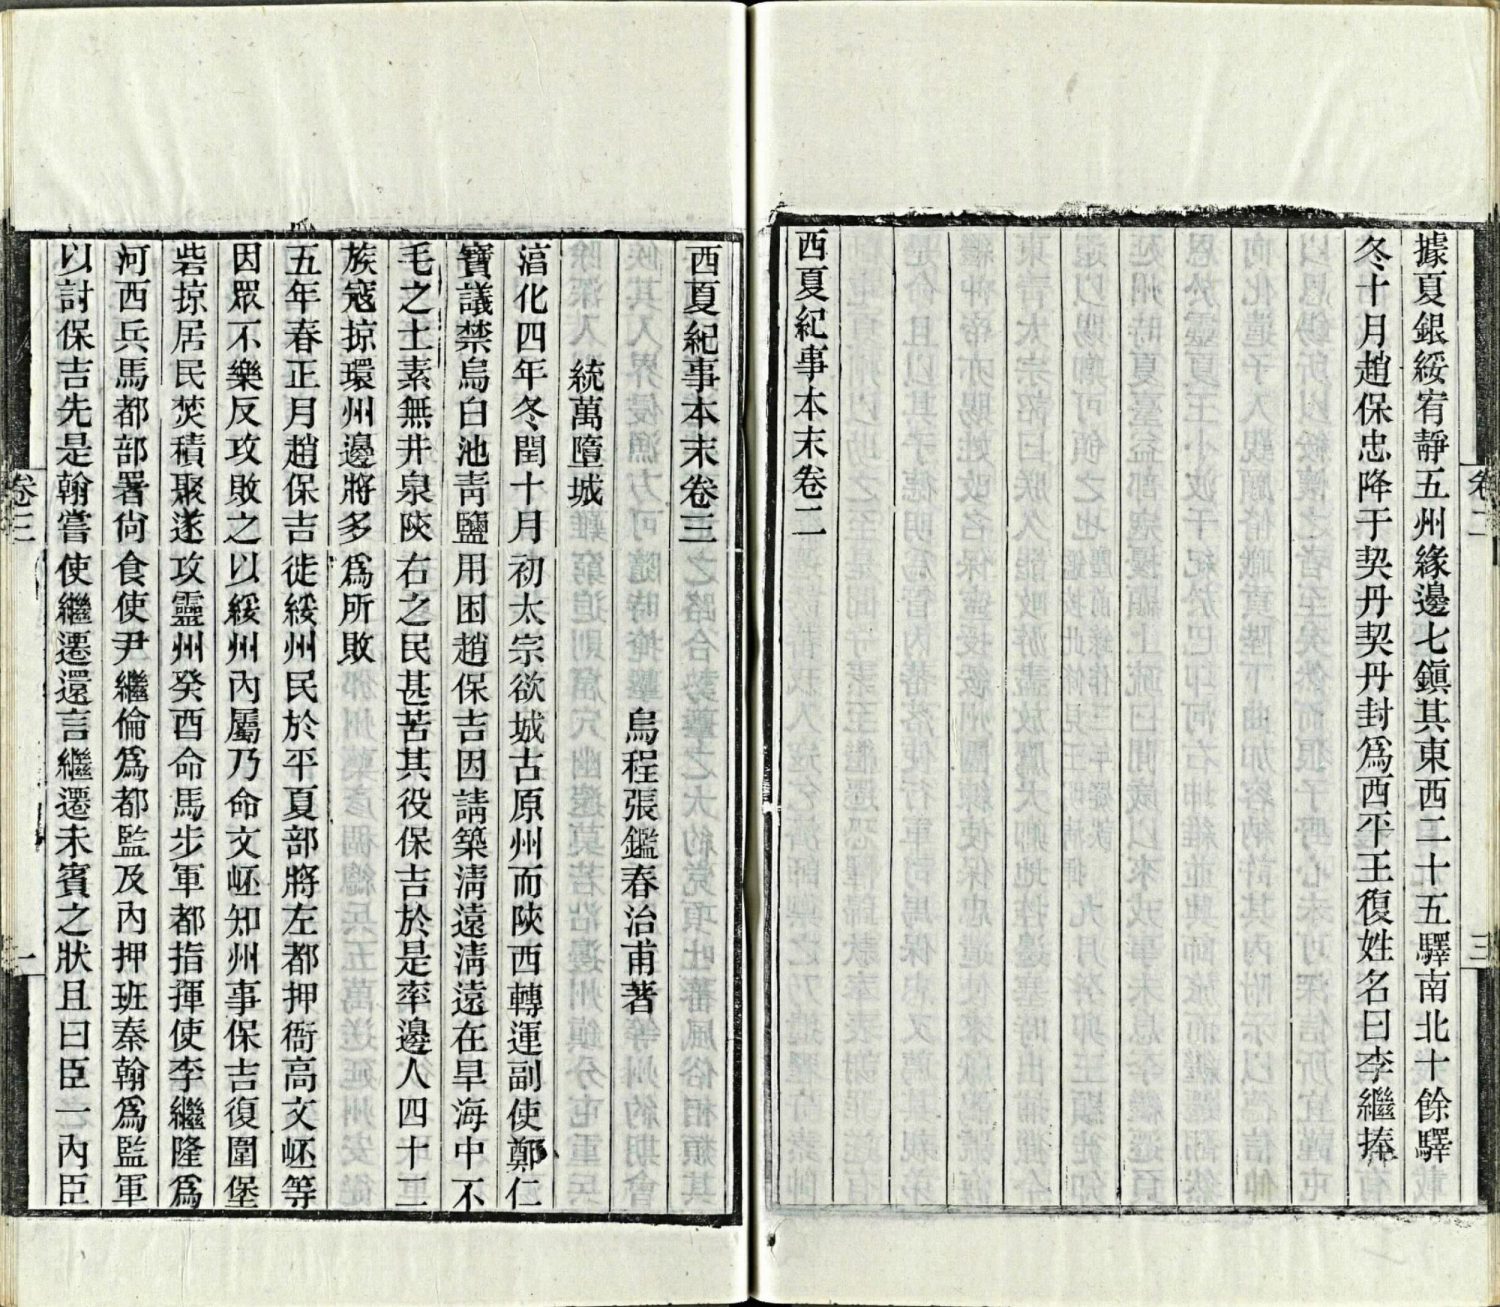 據夏銀綏宥靜五州緣邊七鎮其東西二十五驛南北十餘驛
冬十月趙保忠降于契丹契丹封爲西平王復姓名曰李繼捧
西夏紀事本末卷二
卷二
三
西夏紀事本末卷三
烏程張鑑春治甫著
統萬墮城
淯化四年冬閏十月初太宗欲城古原州而陜西轉運副使鄭仁
寶議禁烏白池靑鹽用困趙保吉因請築淸遠淸遠在旱海中不
毛之土素無井泉陜右之民甚苦其役保吉於是率邊人四十二
族寇掠環州邊將多爲所敗
五年春正月趙保吉徙綏州民於平夏部將左都押衙高文岯等
因眾不樂反攻敗之以綏州內屬乃命文岯知州事保吉復圍堡
砦掠居民焚積聚遂攻靈州癸酉命馬步軍都指揮使李繼隆爲
河西兵馬都部署尙食使尹繼倫爲都監及內押班秦翰爲監軍
以討保吉先是翰嘗使繼遷還言繼遷未賓之狀且曰臣一內臣
卷三
一